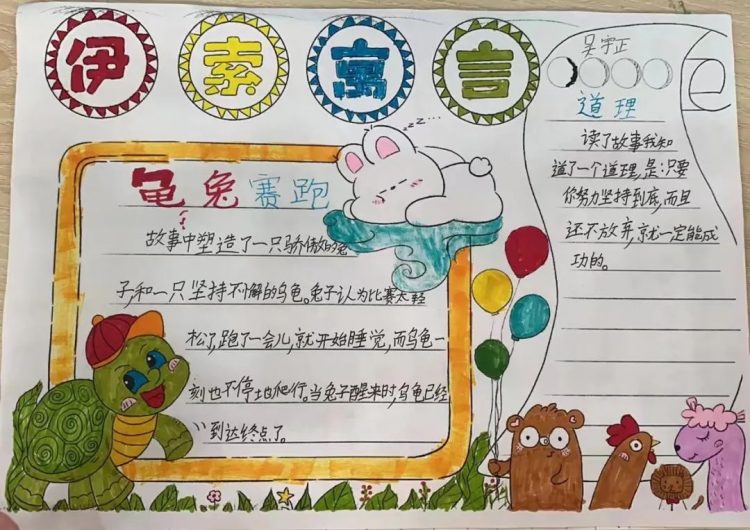 伊索寓言
龟兔赛跑
zzz...
故事中塑造了一只骄傲的兔
子和一只坚持不懈的乌龟。兔子认为比赛太轻
松了,跑了一会儿,就开始睡觉,而乌龟一
刻也不停地爬行。当兔子醒来时,乌龟已经
到达终点了。
吴宇正
道理
读了故事我知
道了一个道理,是:只要
你努力坚持到底,而且
还不放弃,就一定能成
功的。